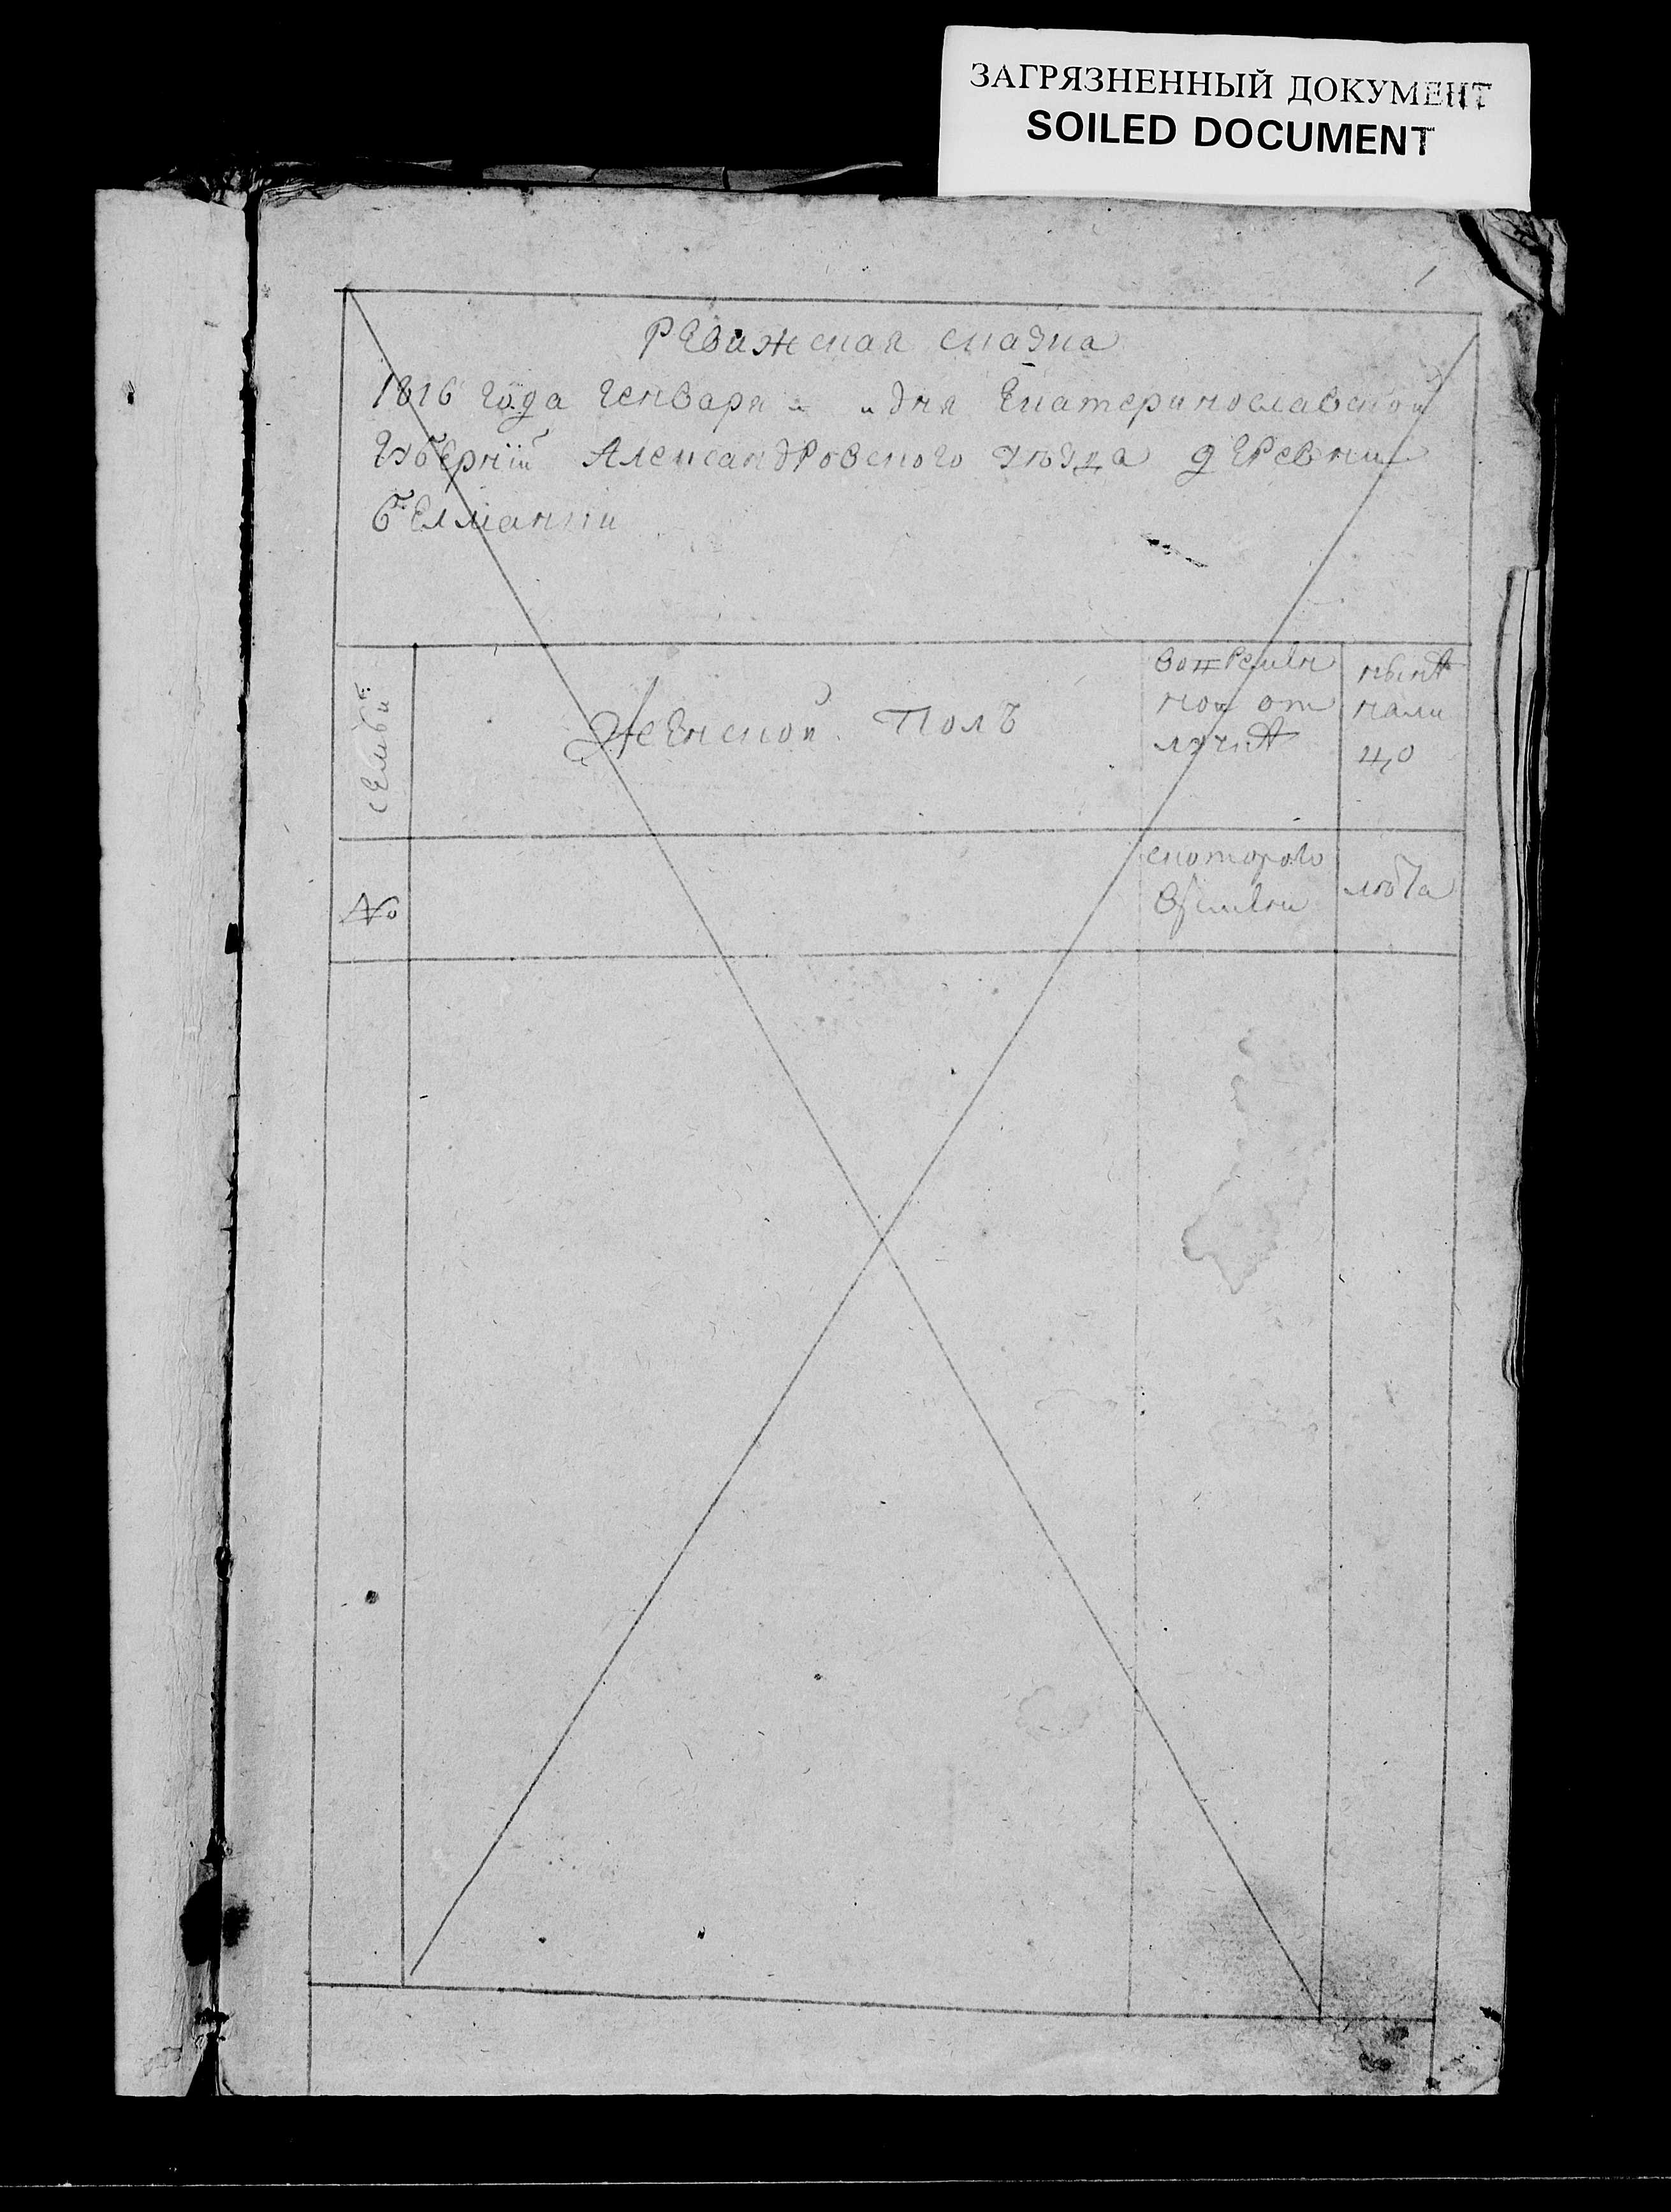 ЗАГРЯЗНЕННЫЙ ДОКУМЕНТ
SOILED DOCUMENT
1
Ревижская сказка
1816 года генваря " " дня Екатеринославской
Губерніи Александровского уѣзда деревни
семьи
Женской полъ
вовремѣн
ной от
лучкѣ
нынѣ
нали
цо
№
скоторого
времѣни
лѣта